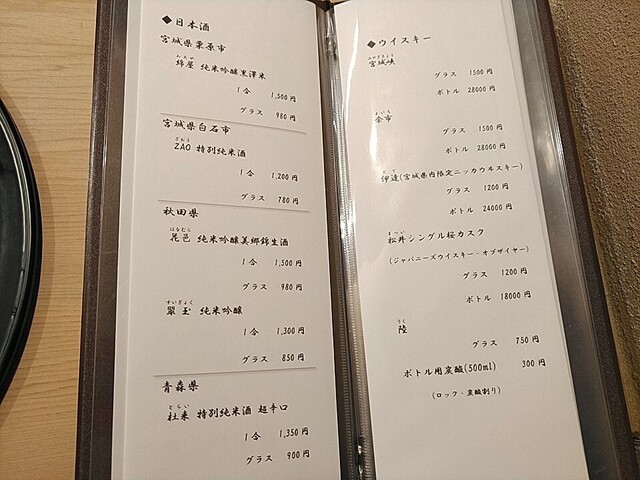 ◆日本酒
宮城県栗原市
わたや
綿屋 純米吟醸黒澤米
1合 1,500円
グラス 980円
宮城県白石市
ざおう
ZAO 特別純米酒
1合 1,200円
グラス 780円
秋田県
はなむら
花邑 純米吟醸美郷錦生酒
1合 1,500円
グラス 980円
すいぎょく
翠玉 純米吟醸
1合 1,300円
グラス 850円
青森県
とらい
杜來 特別純米酒 超辛口
1合 1,350円
グラス 900円
◆ウイスキー
みやぎきょう
宮城峡
グラス 1500円
ボトル 28000円
よいち
余市
グラス 1500円
ボトル 28000円
だて
伊達(宮城県内限定ニッカウヰスキー)
グラス 1200円
ボトル 24000円
まつい
松井シングル桜カスク
(ジャパニーズウイスキー・オブザイヤー)
グラス 1200円
ボトル 18000円
りく
陸
グラス 750円
ボトル用炭酸(500ml) 300円
(ロック・炭酸割り)